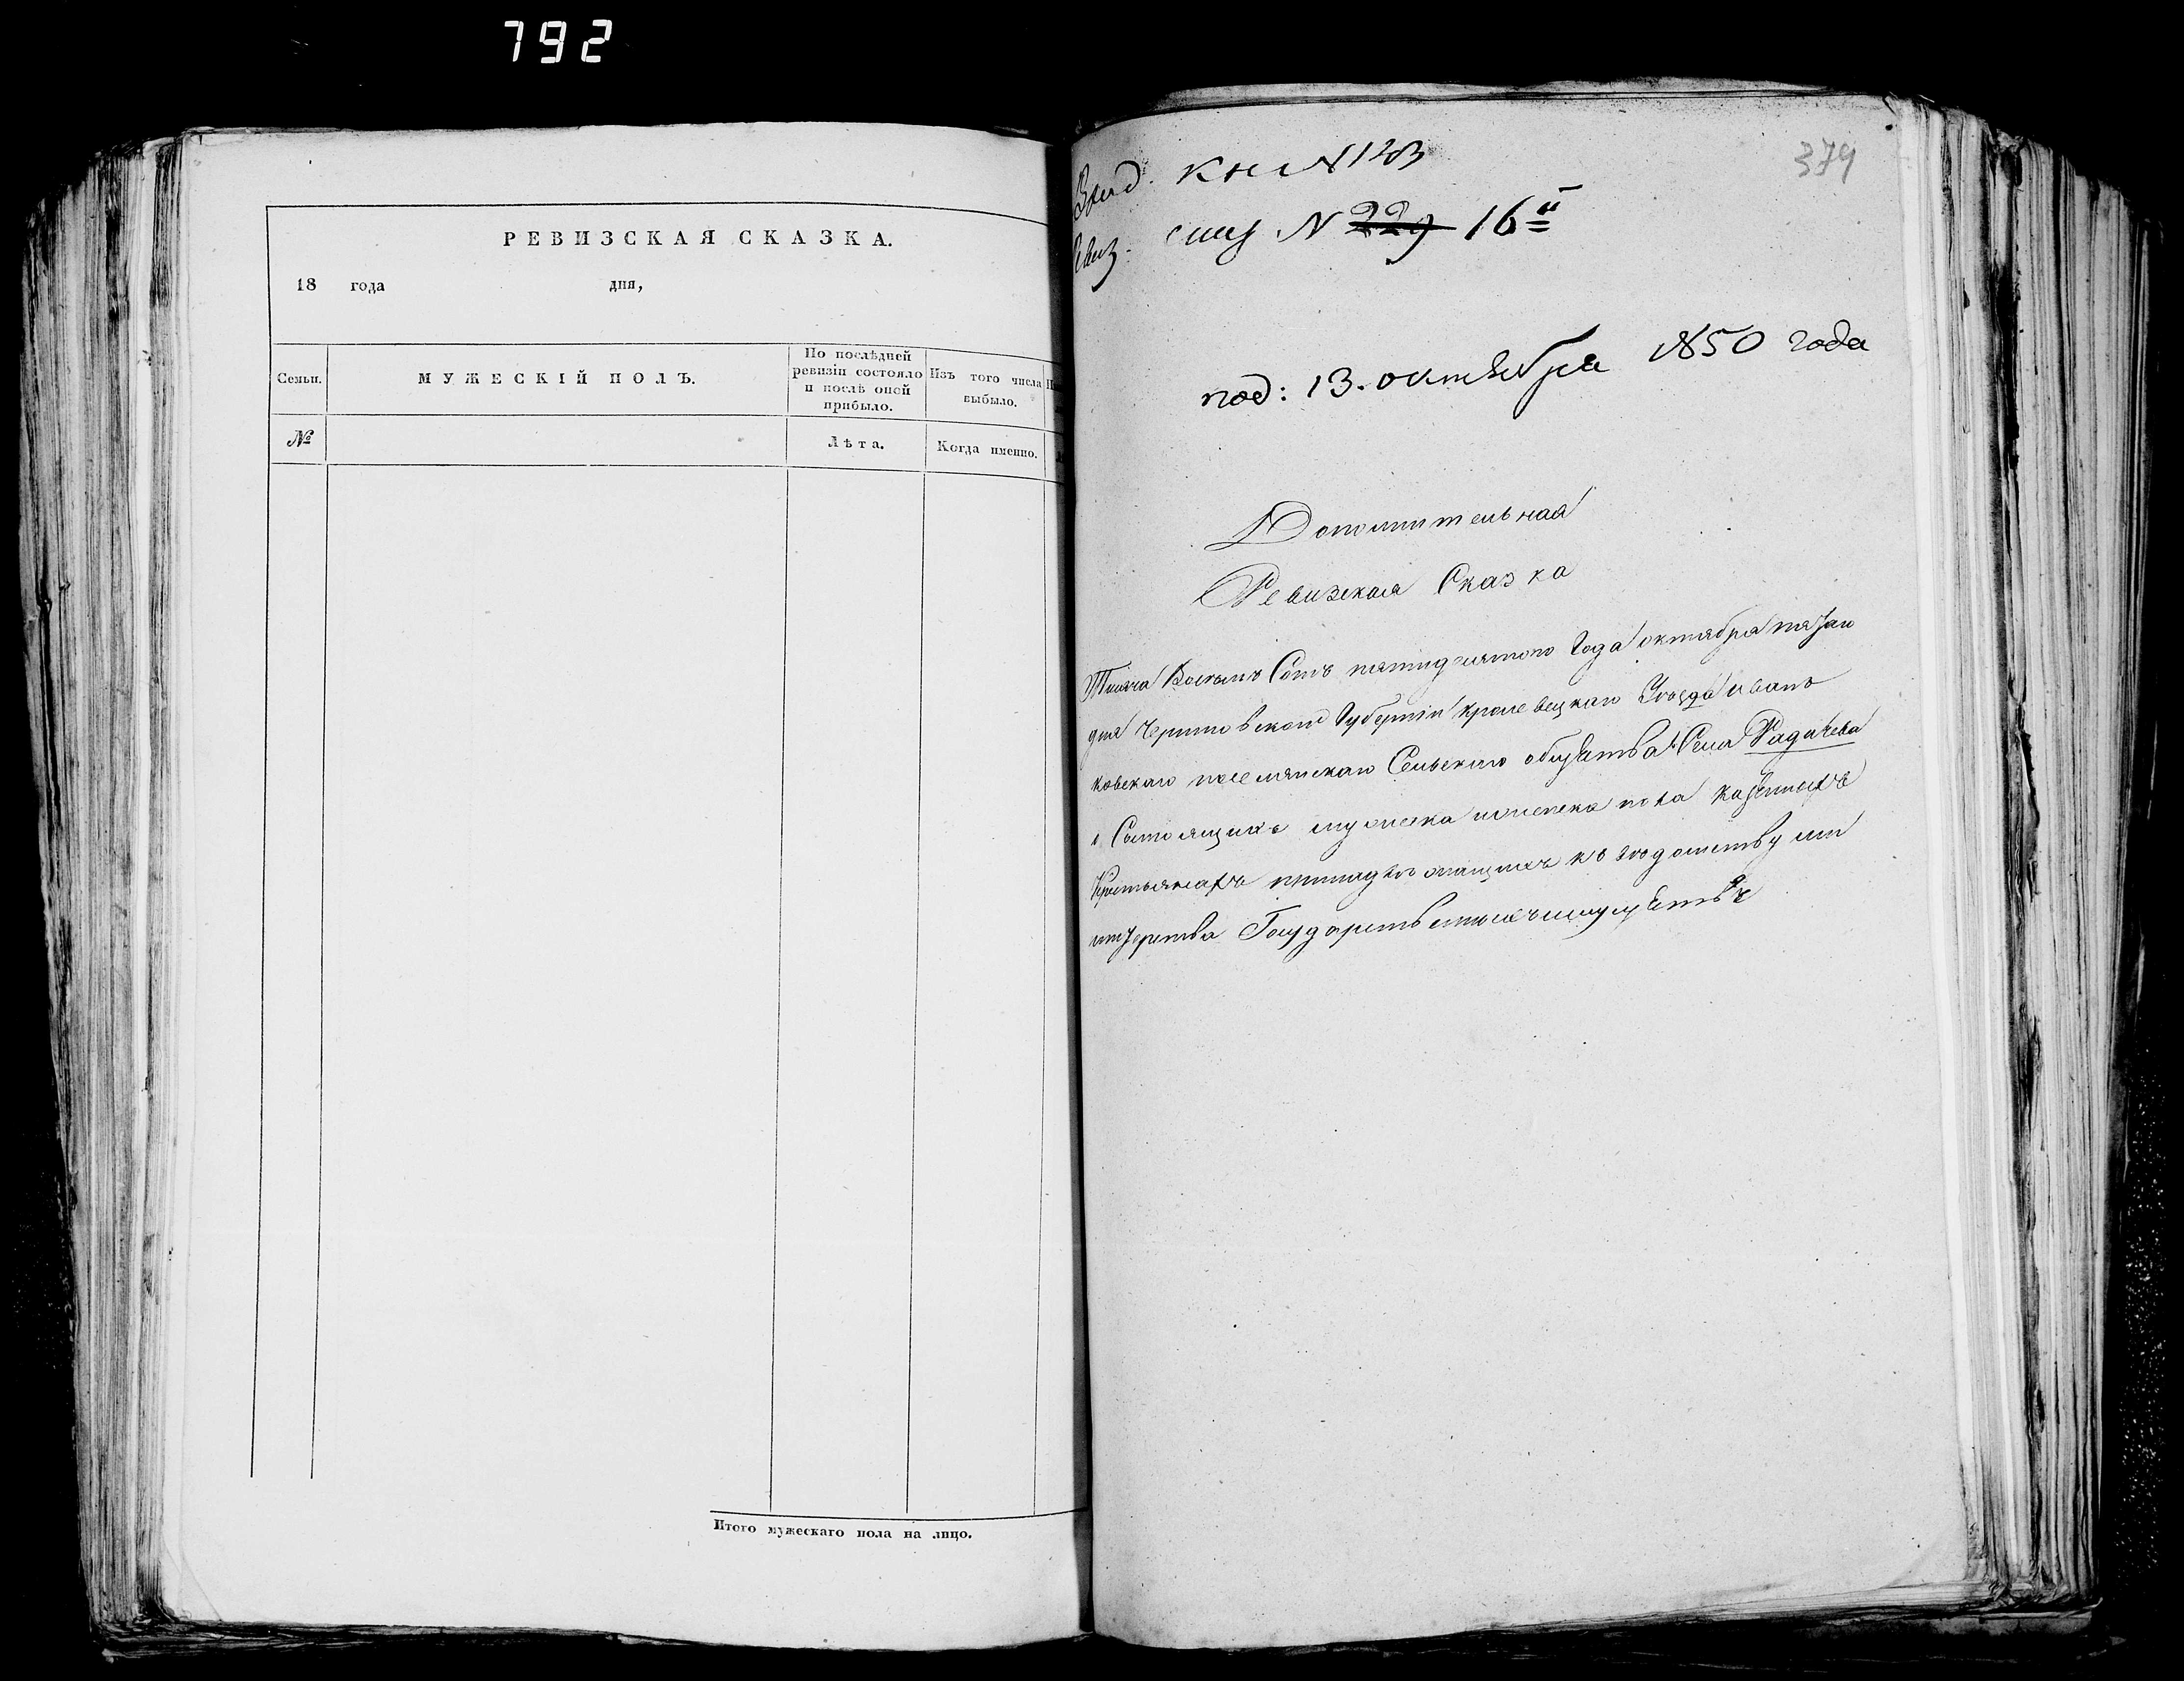 792
РЕВИЗСКАЯ СКАЗКА.
18 года дня,
Семьи.
МУЖЕСКІЙ ПОЛЪ.
По послѣдней
ревизіи состояло
и послѣ оной
прибыло.
Изъ того числа
выбыло.
№
Лѣта.
Когда именно.
Итого мужескаго пола на лицо.
379
кн N 123
N 229 16й
под: 13. октября 1850 года
Дополнительная
Ревизская Сказка
Тысяча Восемь Сотъ пятидесятого Года октября
дня Черниговской Губерніи Кролевецкаго Уѣзда Иванъ
ковскаго Сельскаго общества Села Радичева
о Состоящихъ мужеска и женска пола казенныхъ
Крестьянахъ принадлежащихъ къ вѣдомству ми
нистерства Государственныхъ имуществъ